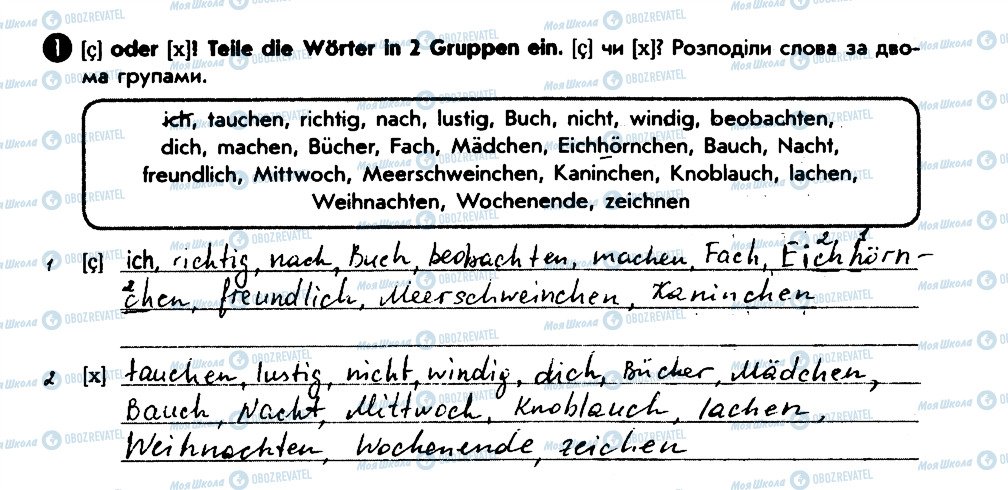 1 [ç] oder [x]! Teile die Wörter in 2 Gruppen ein. [ç] чи [x]? Розподіли слова за дво-
ма групами.
ich, tauchen, richtig, nach, lustig, Buch, nicht, windig, beobachten,
dich, machen, Bücher, Fach, Mädchen, Eichhörnchen, Bauch, Nacht,
freundlich, Mittwoch, Meerschweinchen, Kaninchen, Knoblauch, lachen,
Weihnachten, Wochenende, zeichnen
1 [ç] ich, richtig, nach, Buch, beobachten, machen, Fach, Eichhörn-
chen, freundlich, Meerschweinchen, Kaninchen
2 [x] tauchen, lustig, nicht, windig, dich, Bücher, Mädchen,
Bauch, Nacht, Mittwoch, Knoblauch, lachen,
Weihnachten, Wochenende, zeichen